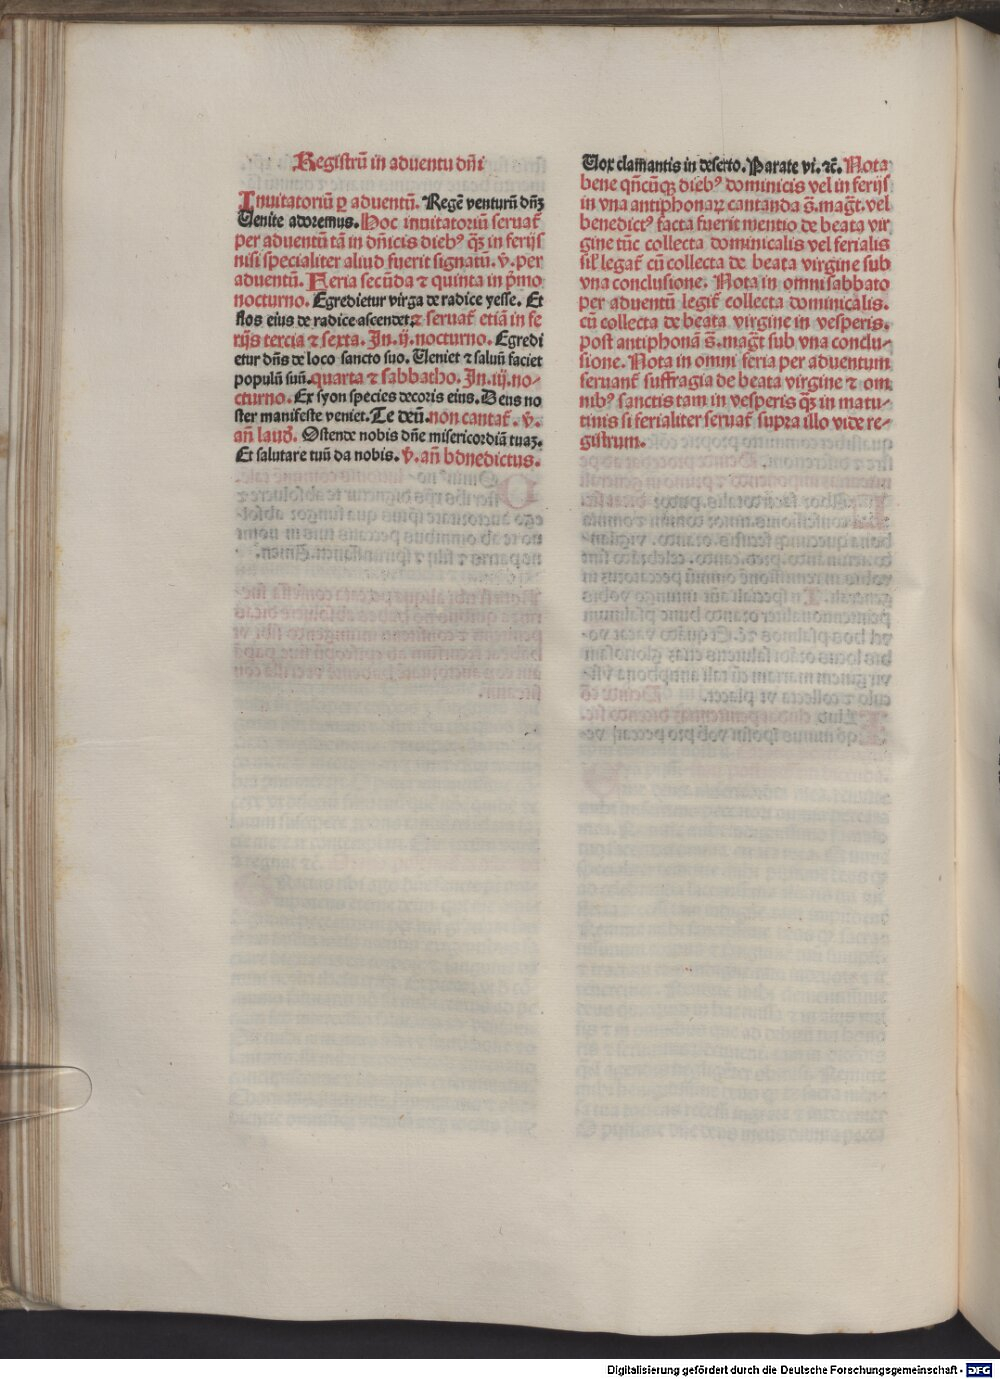 Registrū in aduentu dñi
Inuitatoriū ꝑ aduentū. Regē venturū dñꝫ
Uenite adoremus. Hoc inuitatoriū seruat᷑
per aduentū tā in dñicis diebꝰ qꝫ in ferijs
nisi specialiter aliud fuerit signatū. v̄. per
aduentū. Feria secūda ⁊ quinta in pͥmo
nocturno. Egredietur virga de radice yesse. Et
flos eius de radice ascendet. ⁊ seruat᷑ etiā in fe
rijs tercia ⁊ sexta. In .ij. nocturno. Egredi
etur dñs de loco sancto suo. Ueniet ⁊ saluū faciet
populū suū. quarta ⁊ sabbatho. In .iij. no-
cturno. Ex syon species decoris eius. Deus no
ster manifeste veniet. Te deū. non cantat᷑. v̄.
añ laud᷑. Ostende nobis dñe misericordiā tuaꝫ.
Et salutare tuū da nobis. v̄. añ bñdictus.
Uox clamantis in deserto. Parate vi. ⁊c̄. Nota
bene qn̄cūqꝫ diebꝰ dominicis vel in ferijs
in vna antiphonaꝝ cantanda s̄. mag̃t. vel
benedictꝰ facta fuerit mentio de beata vir
gine tūc collecta dominicalis vel ferialis
sil̓ legat᷑ cū collecta de beata virgine sub
vna conclusione. Nota in omni sabbato
per aduentū legit᷑ collecta dominicalis.
cū collecta de beata virgine in vesperis.
post antiphonā s̄. mag̃t sub vna conclu-
sione. Nota in omni feria per aduentum
seruant᷑ suffragia de beata virgine ⁊ om
nibꝰ sanctis tam in vesperis qꝫ in matu-
tinis si ferialiter seruat᷑ supra illo vide re-
gistrum.
Digitalisierung gefördert durch die Deutsche Forschungsgemeinschaft - DFG